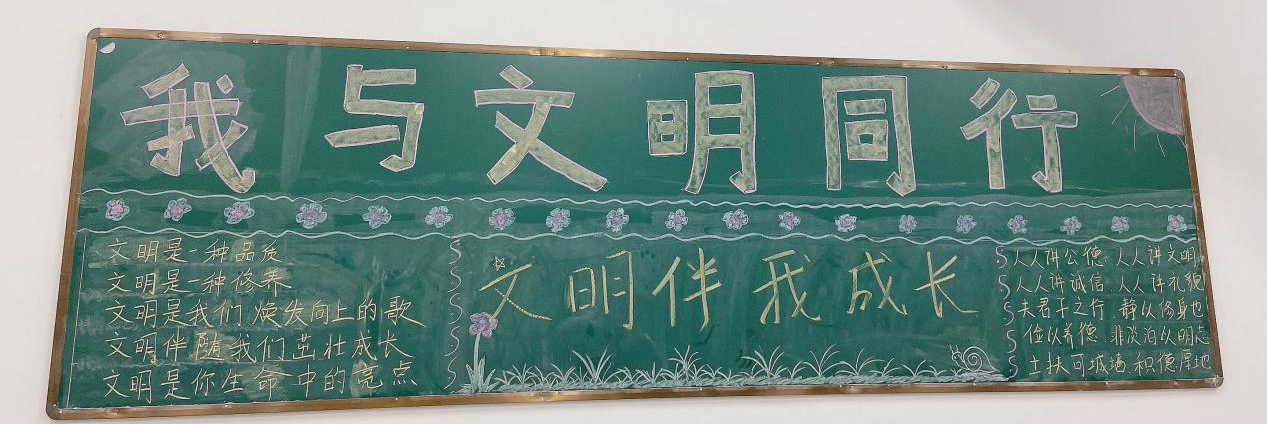 我与文明同行
文明是一种品质
文明是一种修养
文明是我们焕发向上的歌
文明伴随我们茁壮成长
文明是你生命中的亮点
文明伴我成长
人人讲公德 人人讲文明
人人讲诚信 人人讲礼貌
夫君子之行 静以修身也
俭以养德 非淡泊以明志
可城墙 积德厚地